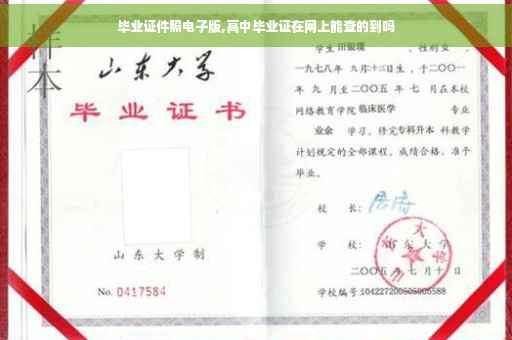 毕业证件照电子版,高中毕业证在网上能查的到吗
样
本
山东大学
毕业证书
山东大学制
No. 0417584
学生 田银环 ，性别女 ，
一九七八年 九月十三日生，于二〇〇一
年 九 月至二〇〇五 年 七 月在本校
网络教育学院 临床医学 专业
业余 学习，修完专科升本 科教学
计划规定的全部课程，成绩合格，准予
毕业。
校 长：
学 校： 山东大学
二〇〇五年七月十日
学校编号:104227200505005588